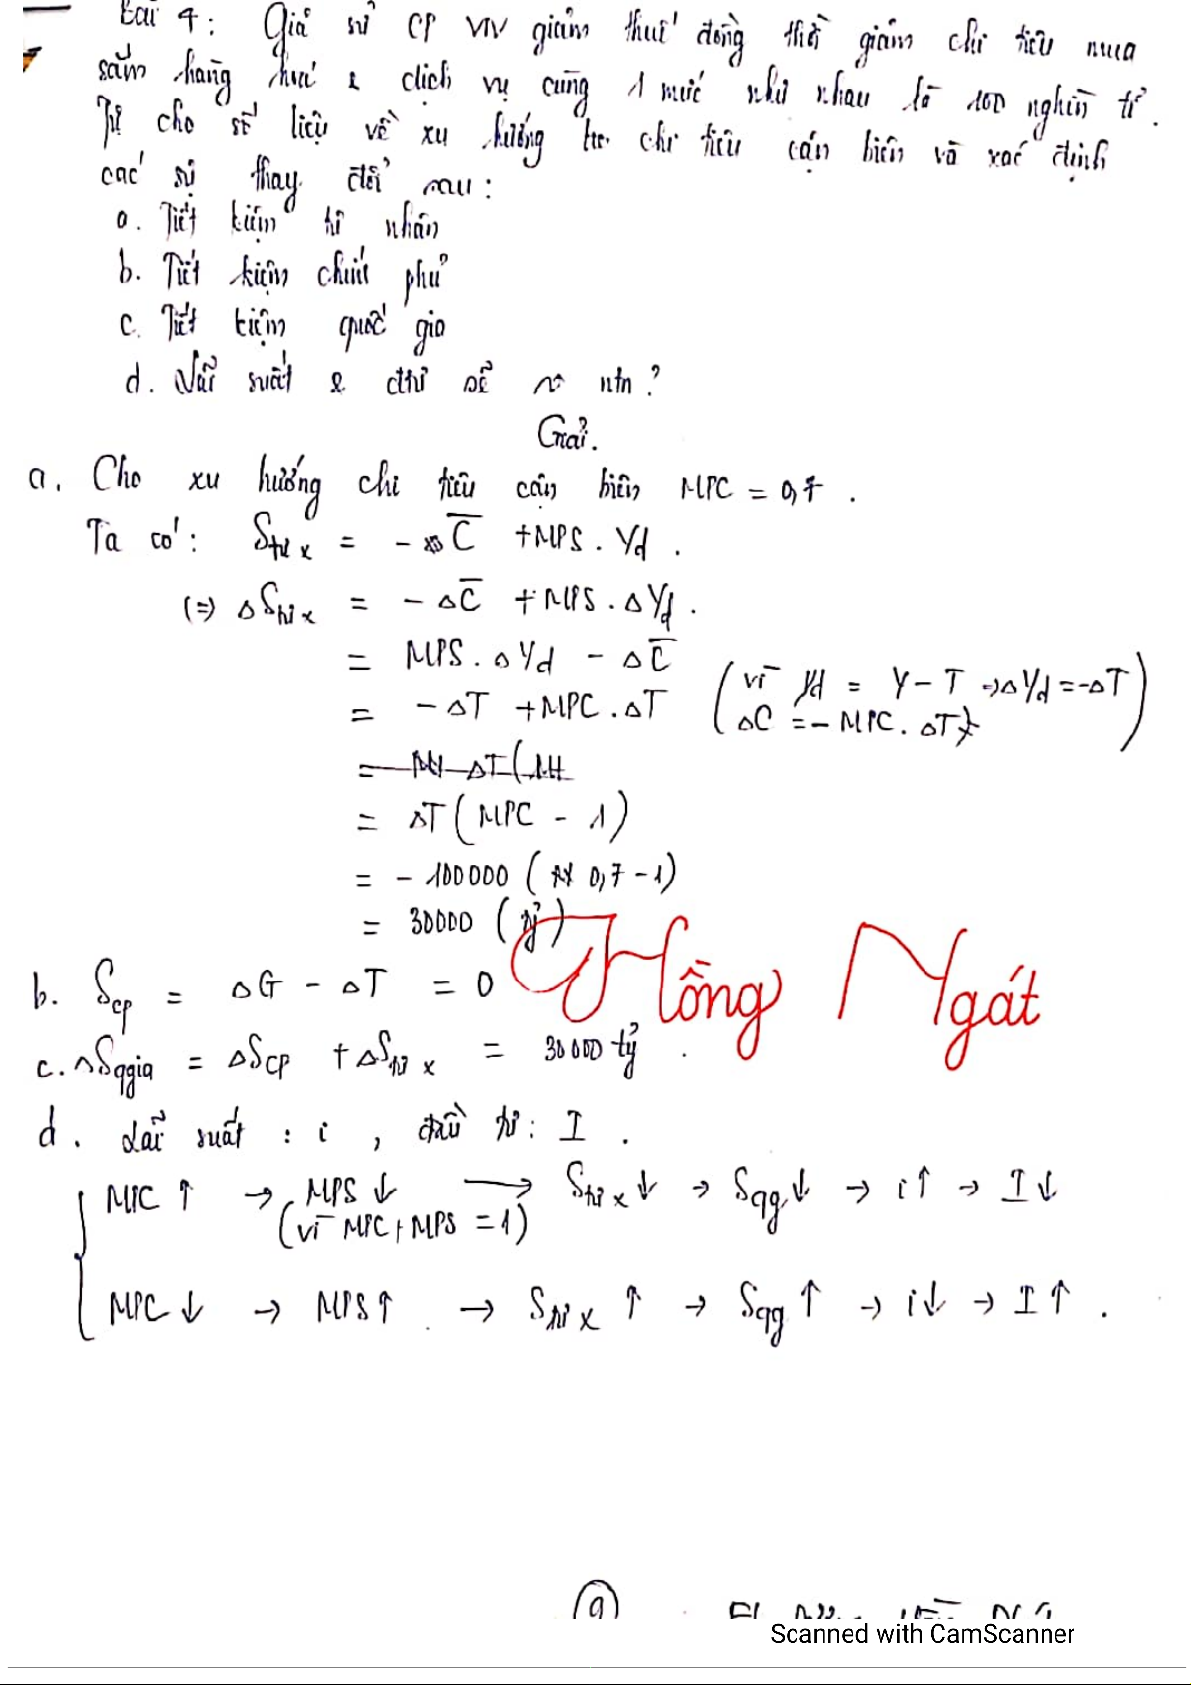 Bài 4: Giả sử CP VN giảm thuế đồng thời giảm chi tiêu mua
sắm hàng hoá & dịch vụ cùng 1 mức như nhau là 100 nghìn tỉ.
Tự cho số liệu về xu hướng tiêu chi tiêu cận biên và xác định
các sự thay đổi sau:
a. Tiết kiệm tư nhân
b. Tiết kiệm chính phủ
c. Tiết kiệm quốc gia
d. Lãi suất & đtư sẽ ntn?
Giải.
a. Cho xu hướng chi tiêu cận biên MPC = 0,7.
Ta có: Stư x = - C̅ + MPS. Yd.
(=) ΔStư x = - ΔC̅ + MPS. ΔYd.
= MPS. ΔYd - ΔC̅
= - ΔT + MPC. ΔT (vì Yd = Y - T => ΔYd = -ΔT
ΔC = - MPC. ΔT)
= ΔT (MPC - 1)
= - 100000 (0,7 - 1)
= 30000 (tỷ)
Hồng Ngát
b. Scp = ΔG - ΔT = 0
c. ΔSqgia = ΔSCP + ΔStư x = 30000 tỷ.
d. Lãi suất: i, đầu tư: I.
MPC ↑ → MPS ↓ → Stư x ↓ → Sqg ↓ → i ↑ → I ↓
(vì MPC + MPS = 1)
MPC ↓ → MPS ↑ → Stư x ↑ → Sqg ↑ → i ↓ → I ↑.
9
Scanned with CamScanner